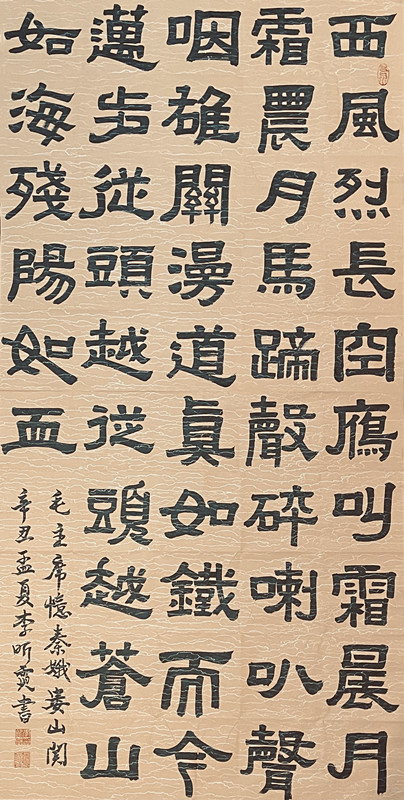 西風烈長空鴈叫霜晨月
霜農月馬蹄聲碎喇叭聲
咽雄關漫道眞如鐵而今
邁步從頭越從頭越蒼山
如海殘陽如血
毛主席憶秦娥婁山関
辛丑孟夏李昕書